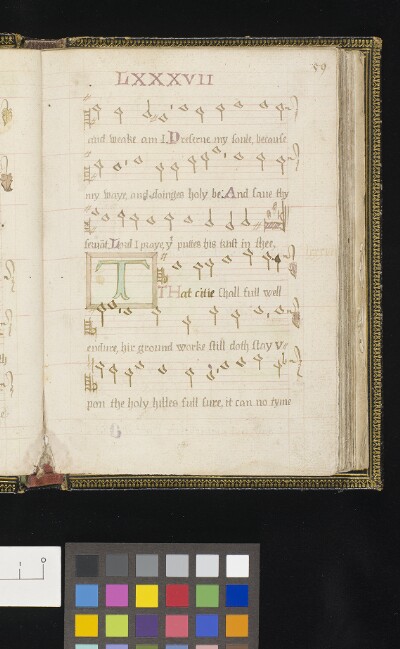 59
LXXXVII
and weake am I. Preserue my soule, because
my waye, and doinges holy be: And saue thy
seruāt Lord I praye, yt puttes his trust in thee,
THat citie shall full well
endure, hir ground worke still doth stay v//
pon the holy hilles full sure, it can no tyme